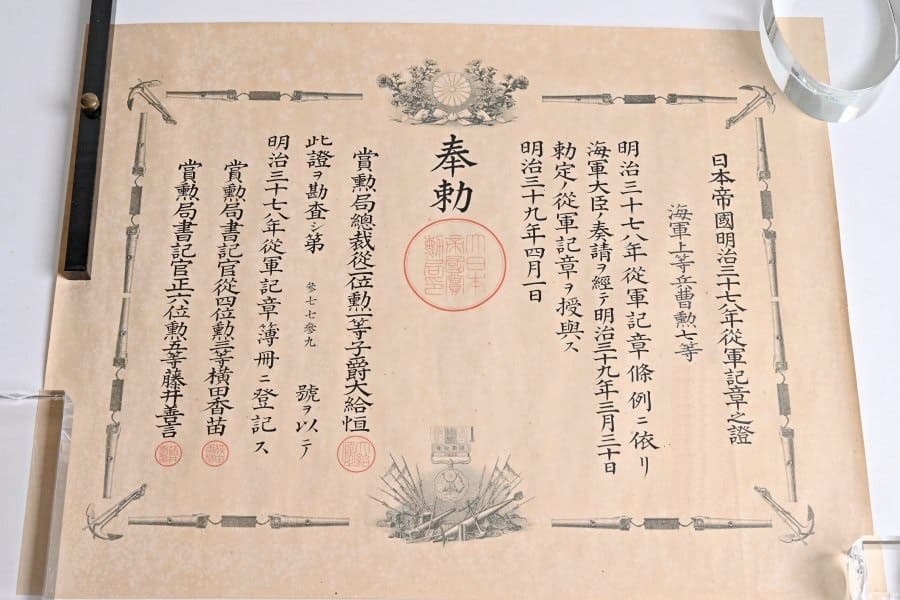 日本帝國明治三十七八年從軍記章之證
海軍上等兵曹勲七等
明治三十七八年從軍記章條例ニ依リ
海軍大臣ノ奏請ヲ經テ明治三十九年三月三十日
勅定ノ從軍記章ヲ授與ス
明治三十九年四月一日
奉勅
大日本帝國賞勲局印
賞勲局總裁從二位勲一等子爵大給恒
此證ヲ勘査シ第參七七參九號ヲ以テ
明治三十七八年從軍記章簿冊ニ登記ス
賞勲局書記官從四位勲三等横田香苗
賞勲局書記官正六位勲五等藤井善言